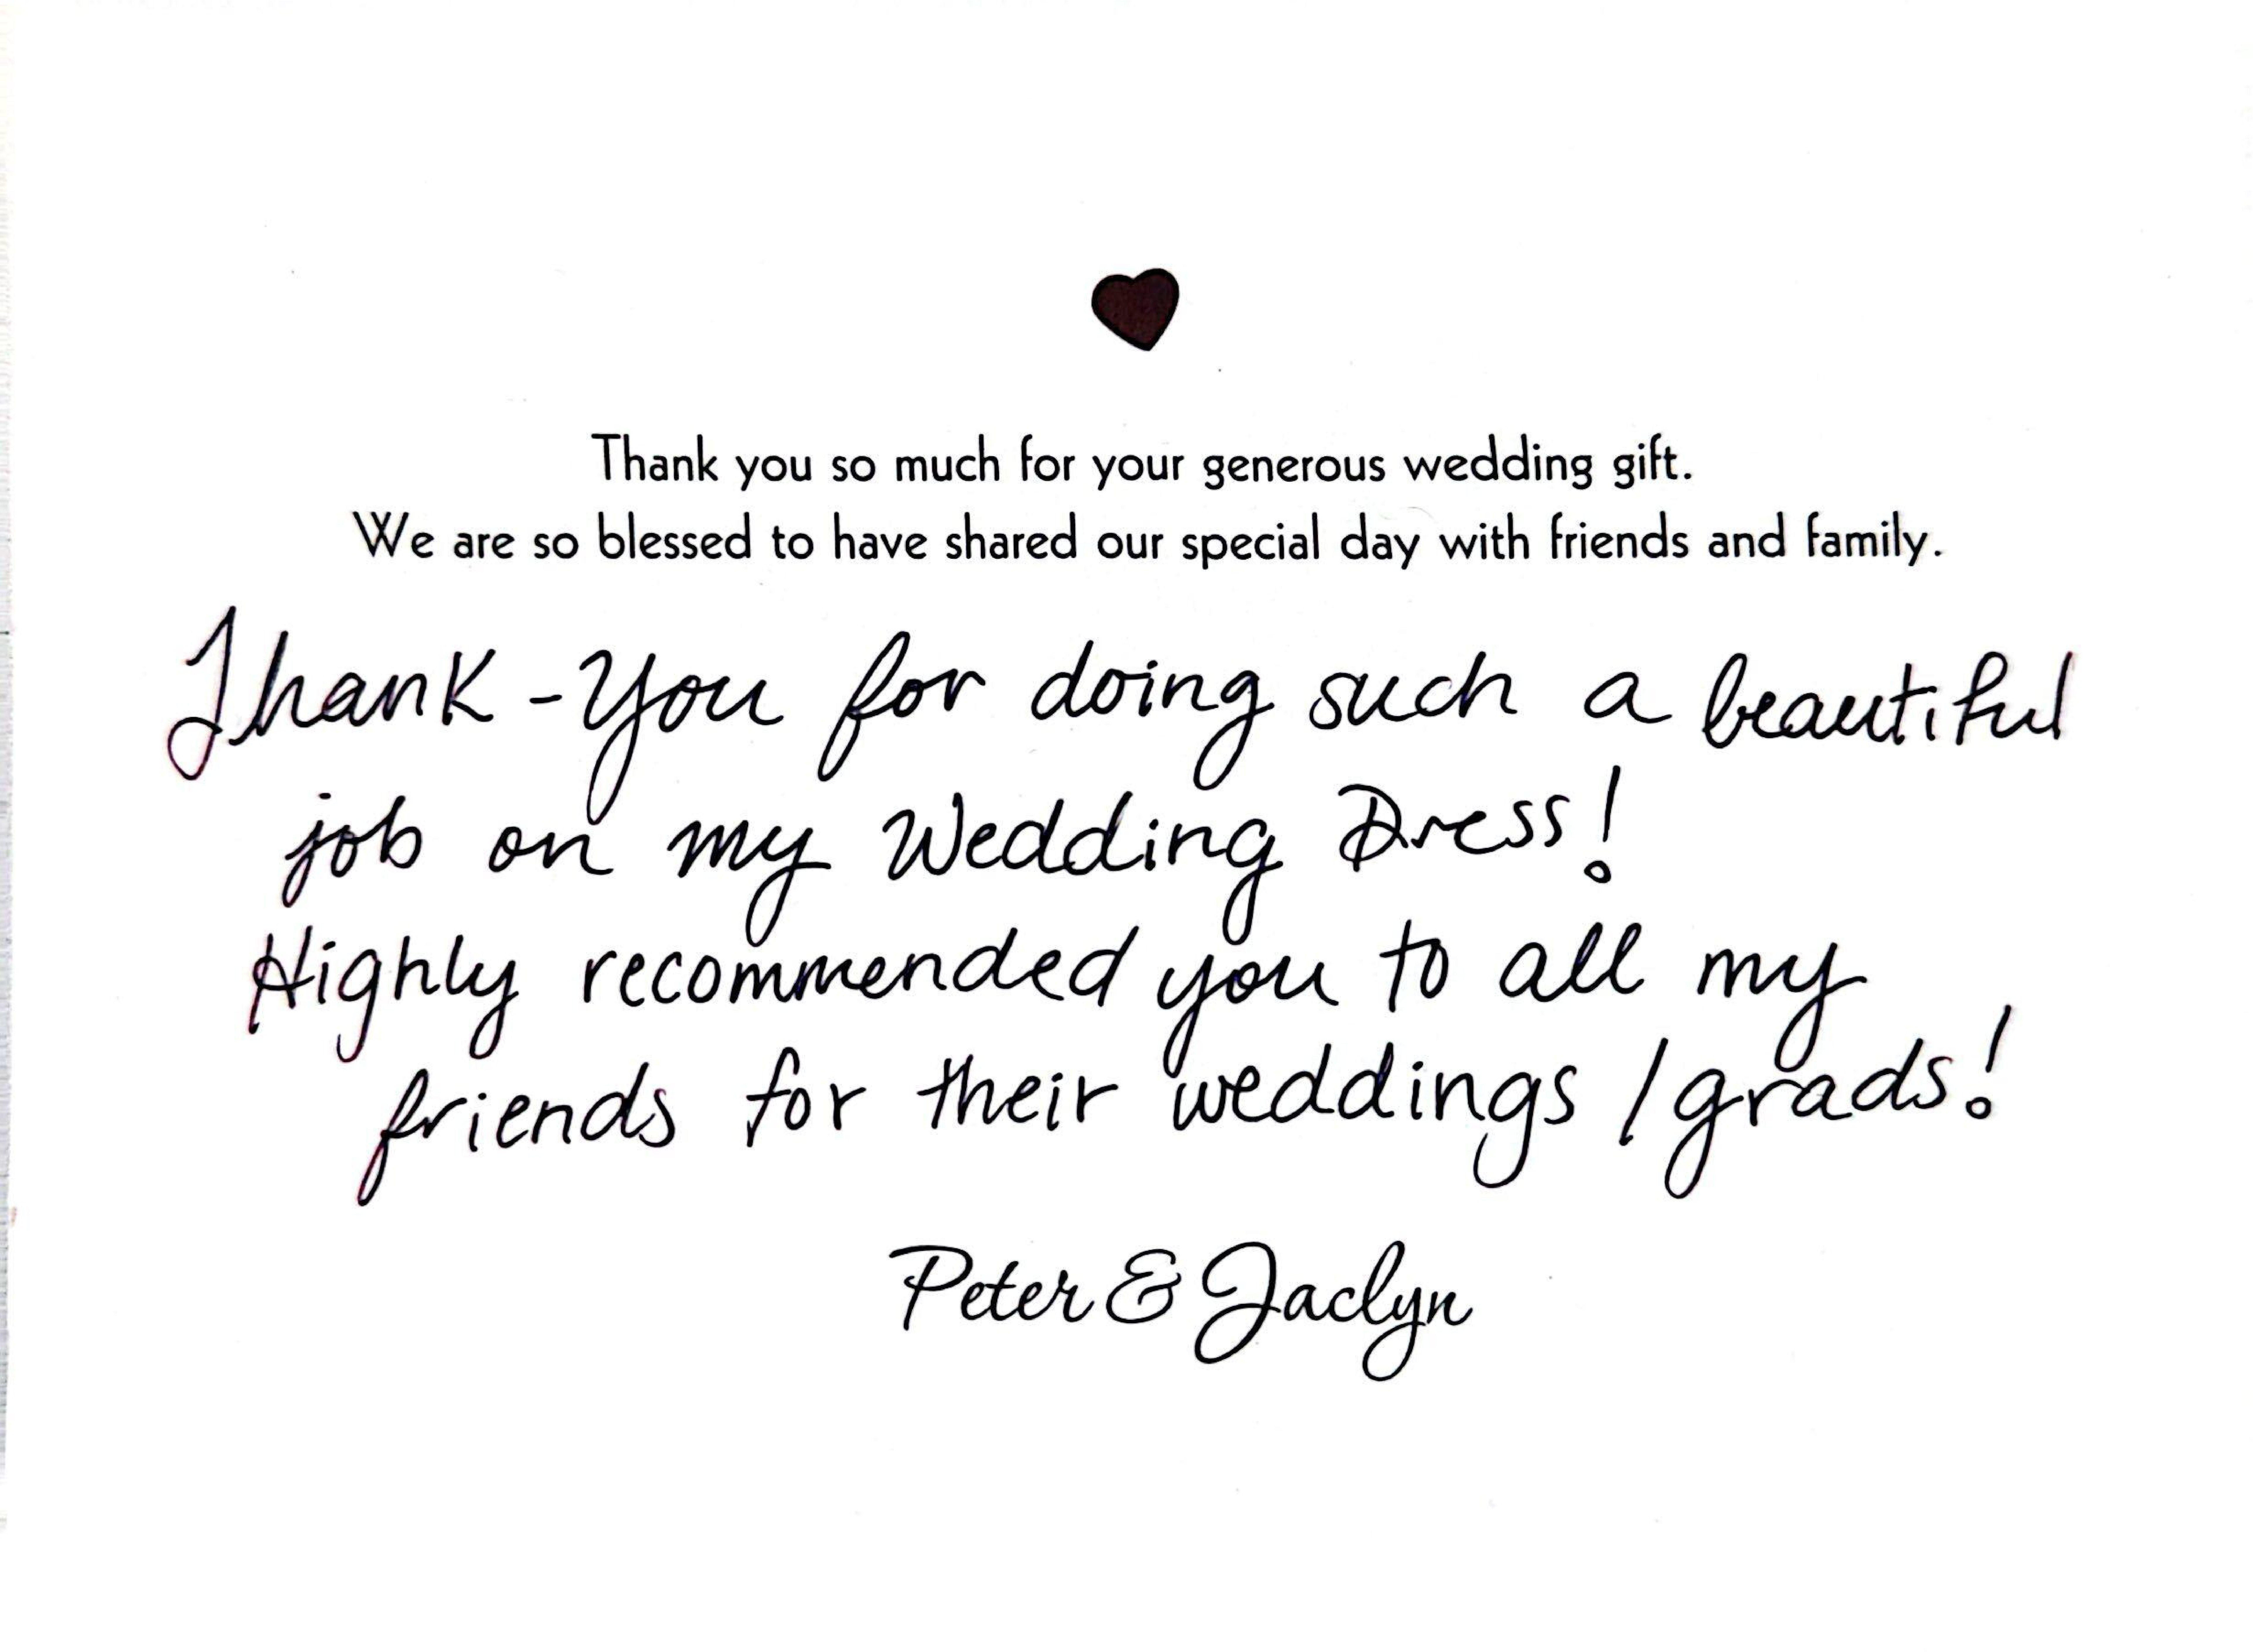 Thank you so much for your generous wedding gift.
We are so blessed to have shared our special day with friends and family.
Thank-You for doing such a beautiful
job on my Wedding Dress!
Highly recommended you to all my
friends for their weddings / grads!
Peter & Jaclyn